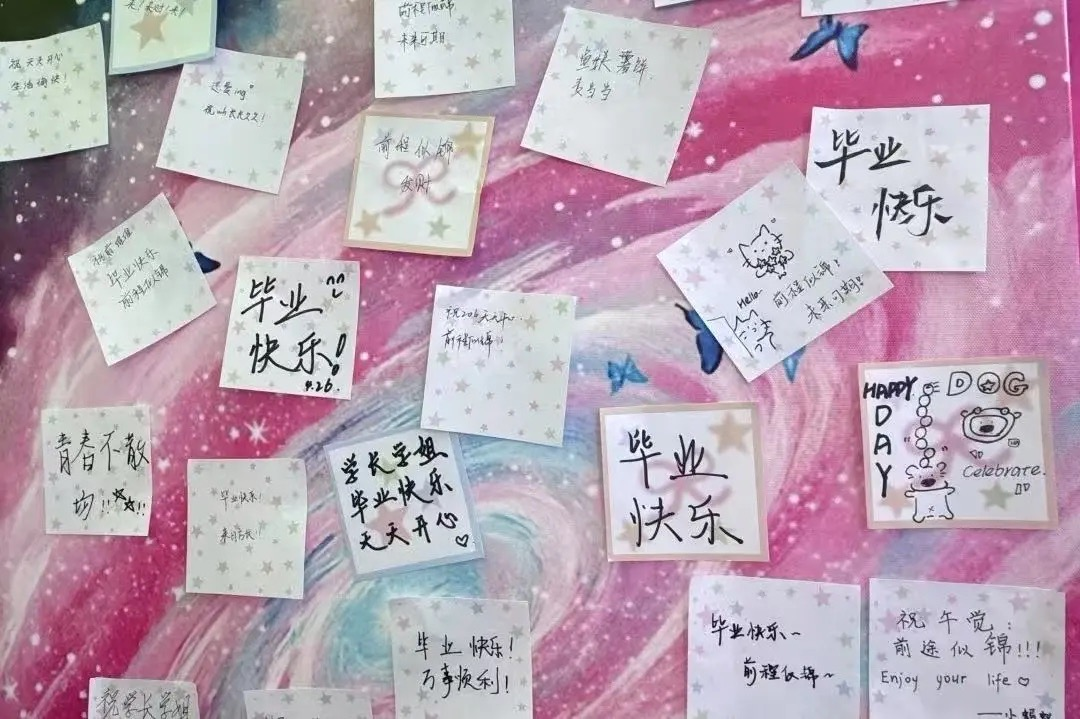 前程似锦
未来可期
祝天天开心
生活愉快!
还爱ing
鱼饼薯饼
麦当当
前程似锦
发财
毕业
快乐
Hello~
前程似锦!
未来可期!
毕业快乐
前程似锦
毕业
快乐!
4.26.
祝206天天开心.
前程似锦!
HAPPY
DOG
DAY
Celebrate.
青春不散
场!!
毕业快乐!
来日方长!
学长学姐
毕业快乐
天天开心
毕业
快乐
毕业快乐!
万事顺利!
毕业快乐~
前程似锦~
祝午觉:
前途似锦!!!
Enjoy your life
祝学长学姐